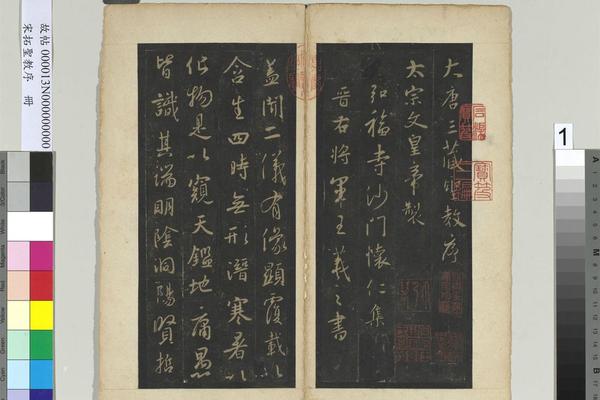 大唐三藏聖教序
太宗文皇帝製
弘福寺沙門懷仁集
晉右將軍王羲之書
蓋聞二儀有像顯覆載以
含生四時無形潛寒暑以
化物是以窺天鑑地庸愚
皆識其端明陰洞陽賢哲
故帖 000013N000000000
宋拓聖教序 冊
1